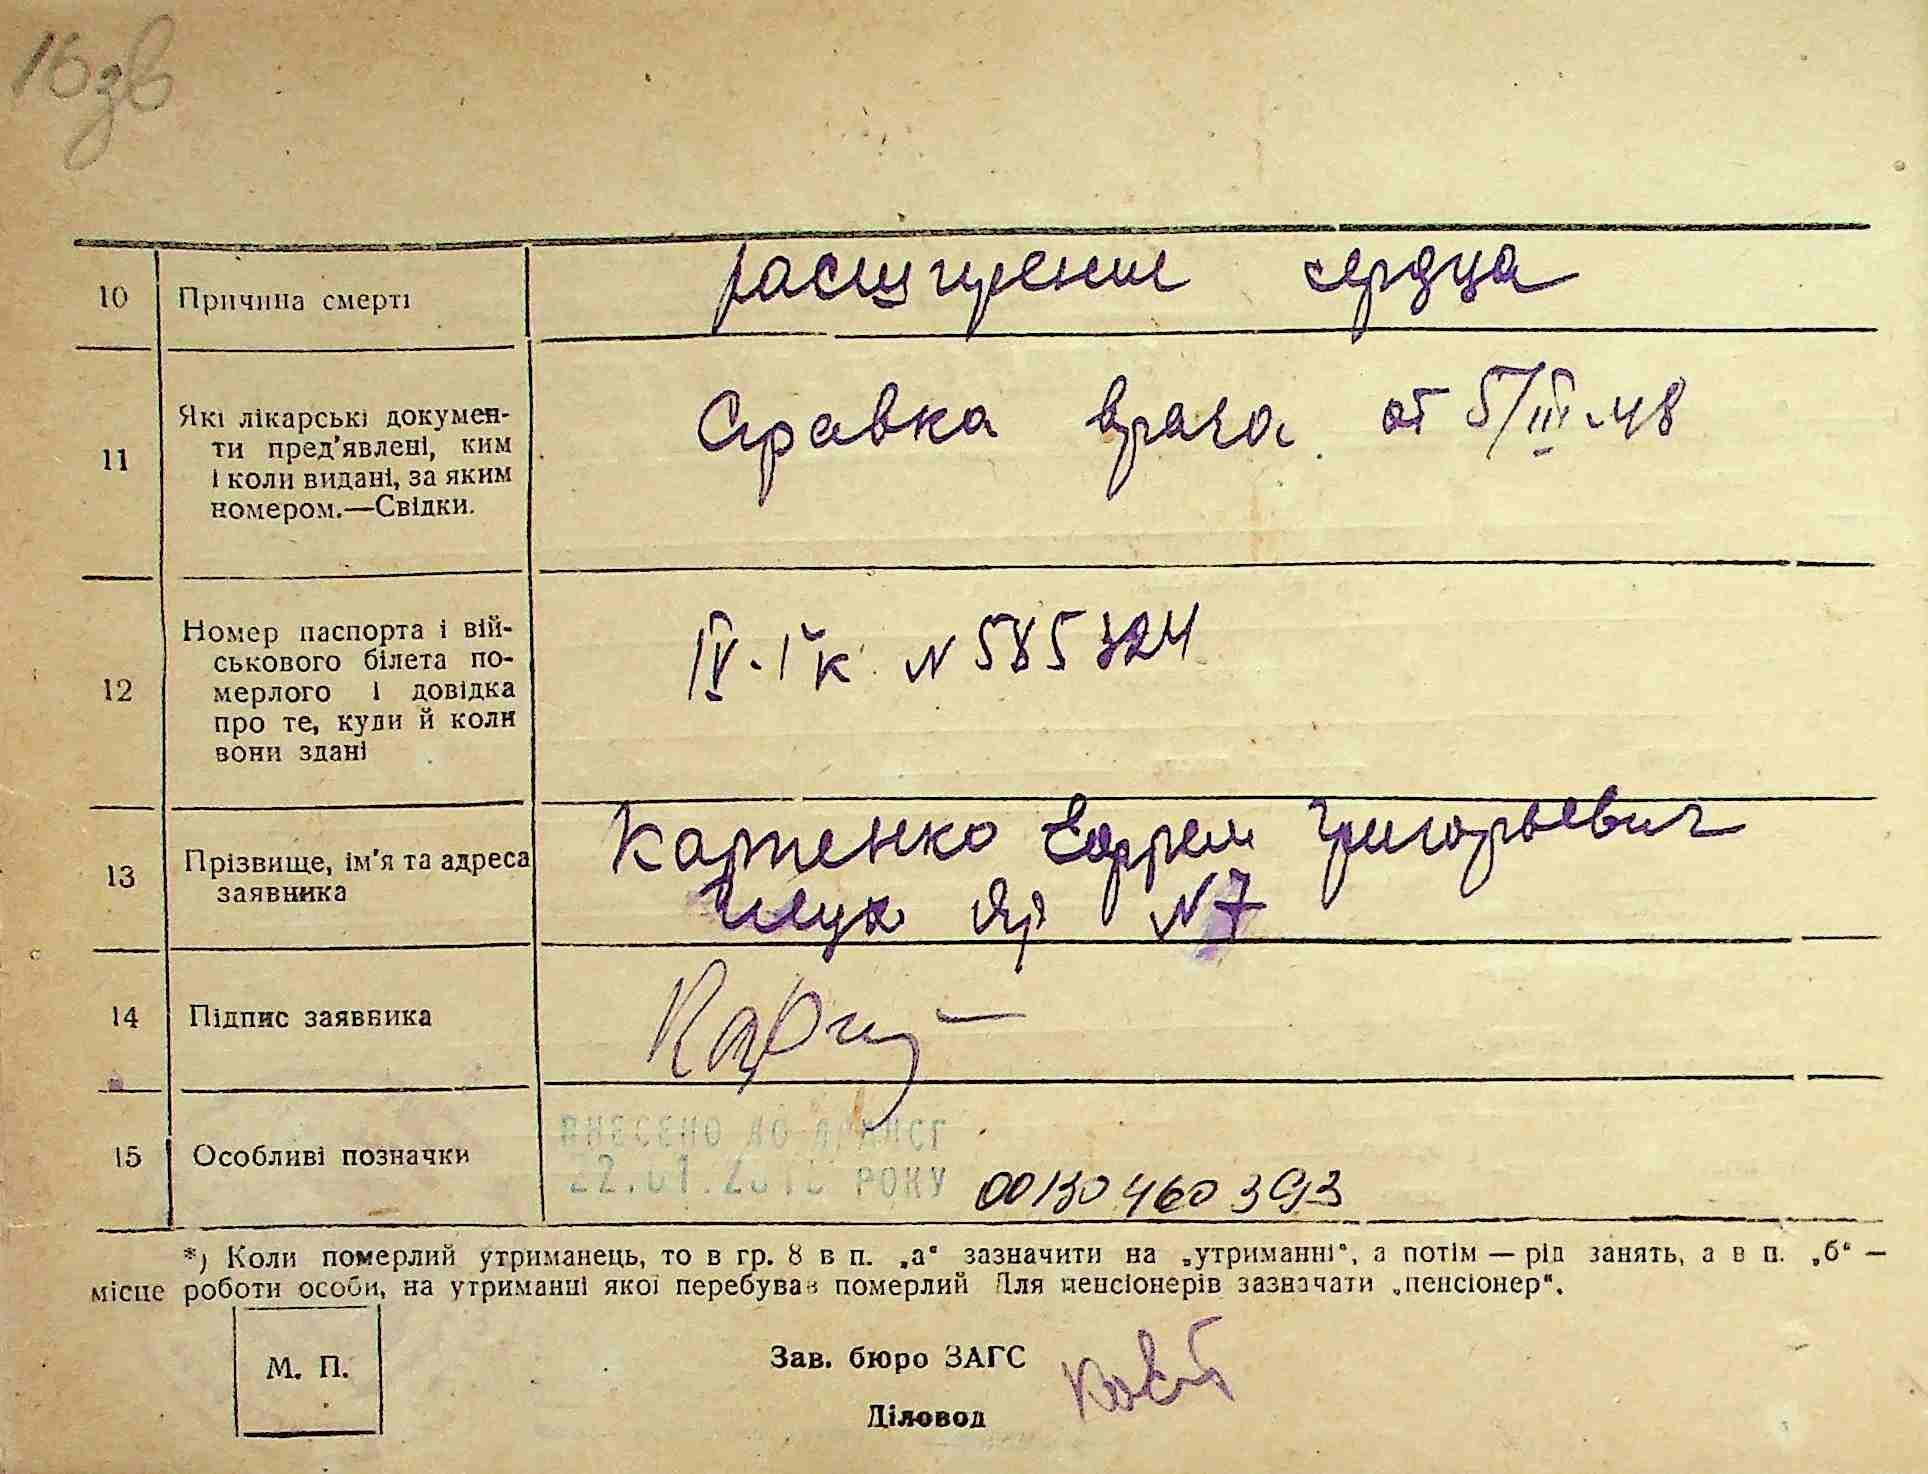 16зв
10 Причина смерті расширение сердца
11 Які лікарські докумен-
ти пред'явлені, ким
і коли видані, за яким
номером.—Свідки.
Справка врача от 5/III-48
12 Номер паспорта і вій-
ськового білета по-
мерлого і довідка
про те, куди й коли
вони здані
IV-IЧк N 585324
13 Прізвище, ім'я та адреса
заявника
Карпенко Ефрем Григорьевич
яр N7
14 Підпис заявника
15 Особливі позначки
ВНЕСЕНО ДО ДРАЦСГ
22.01. РОКУ 00130460393
*) Коли померлий утриманець, то в гр. 8 в п. „а“ зазначити на „утриманні“, а потім — рід занять, а в п. „б“ —
місце роботи особи, на утриманні якої перебував померлий Для пенсіонерів зазначати „пенсіонер“.
М. П.
Зав. бюро ЗАГС
Діловод